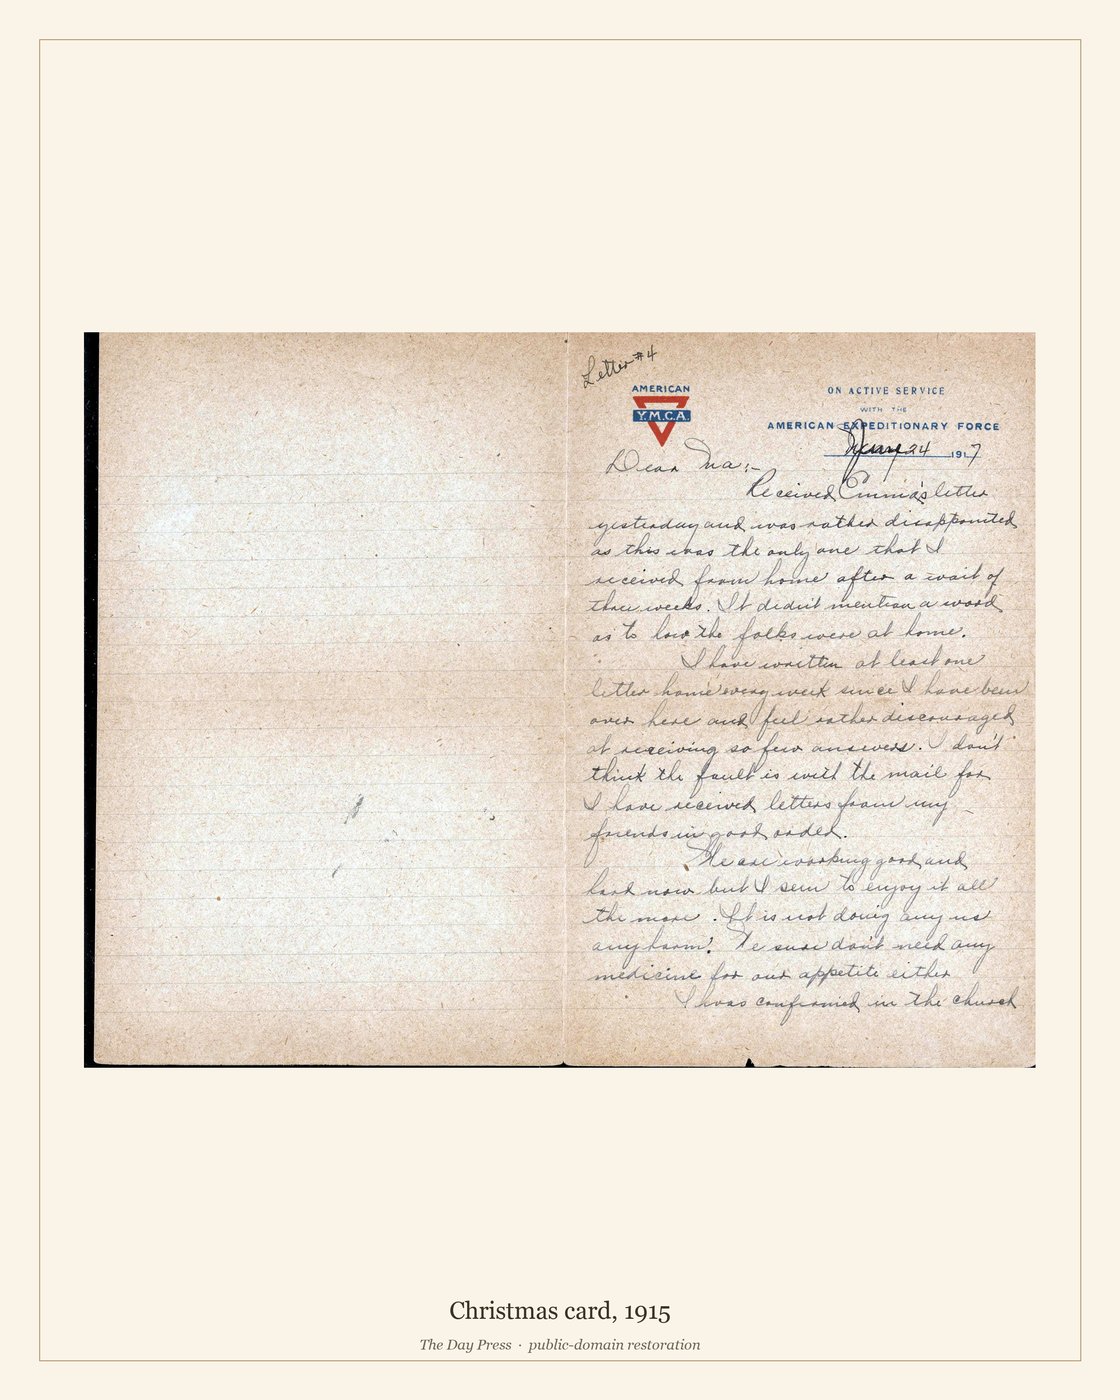 Letter #4
AMERICAN
Y.M.C.A.
ON ACTIVE SERVICE
WITH THE
AMERICAN EXPEDITIONARY FORCE
24 1917
Dear Ma:-
Received Emma's letter
yesterday and was rather disappointed
as this was the only one that I
received from home after a wait of
three weeks. It didn't mention a word
as to how the folks were at home.
I have written at least one
letter home every week since I have been
over here and feel rather discouraged
at receiving so few answers. I don't
think the fault is with the mail for
I have received letters from my
friends in good order.
We are working good and
hard now but I seem to enjoy it all
the more. It is not doing any us
any harm. We sure don't need any
medicine for our appetite either
I was confirmed in the church
Christmas card, 1915
The Day Press · public-domain restoration